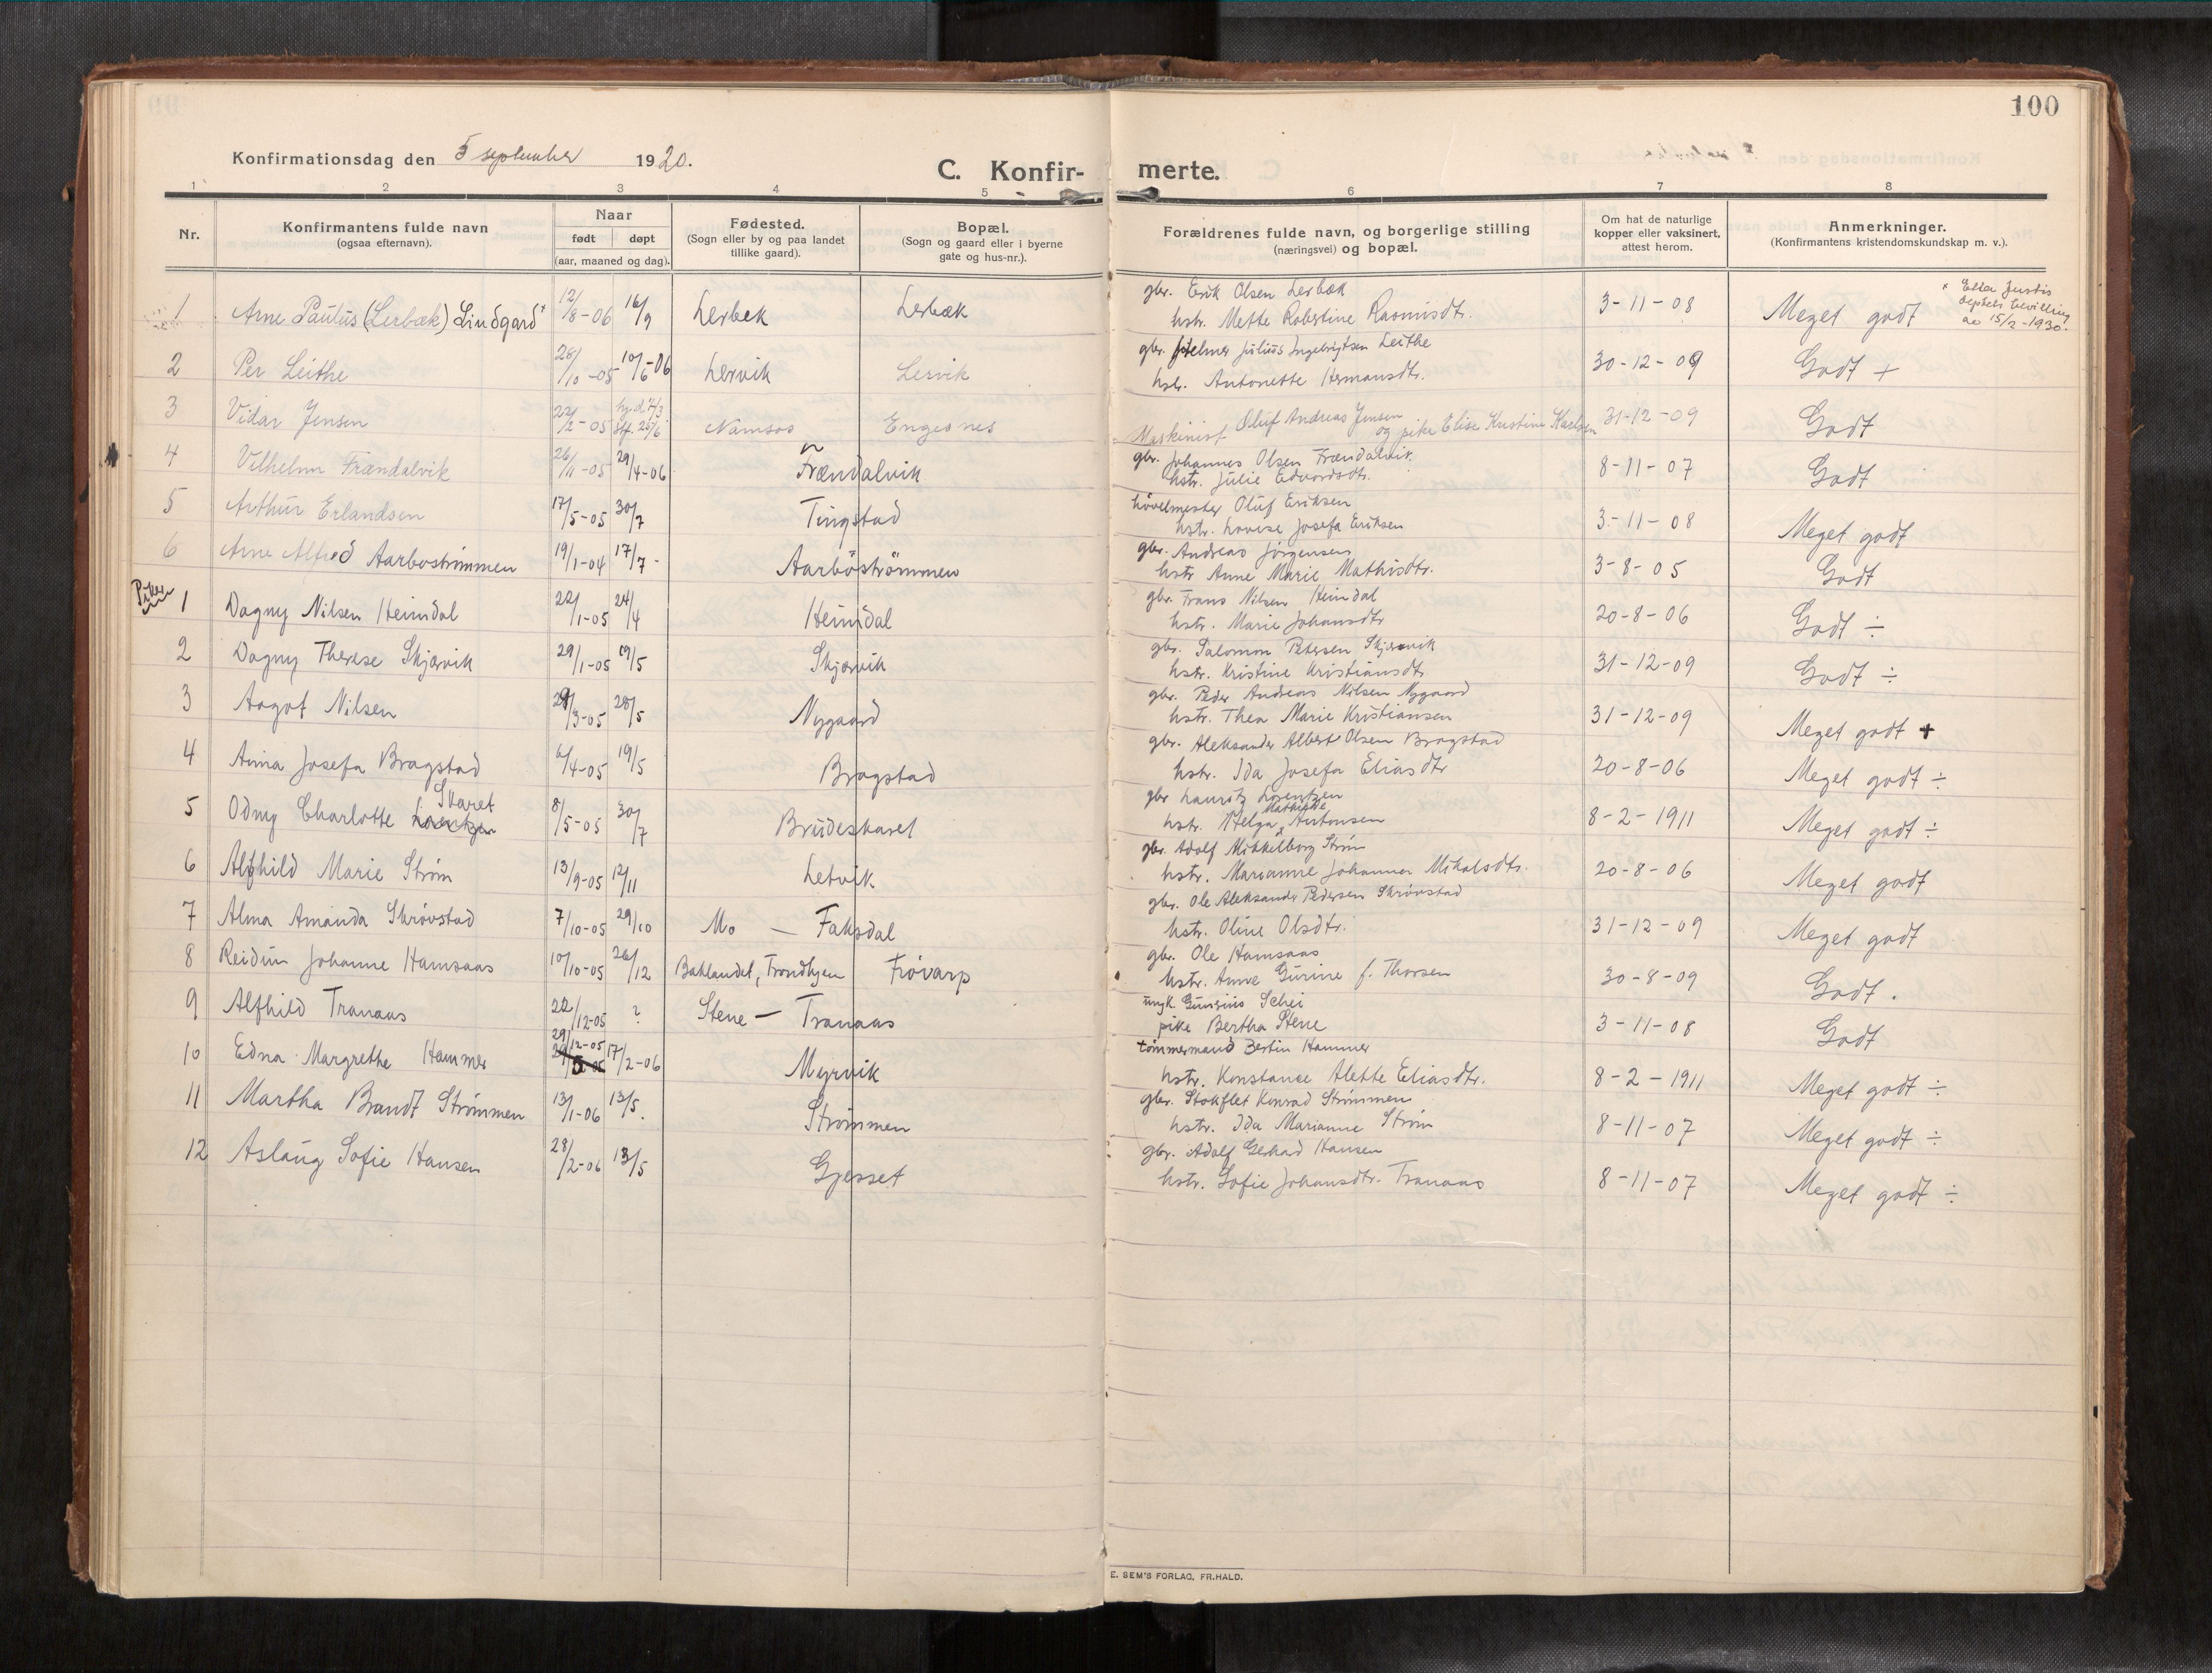 100
Konfirmationsdag den 5 september 1920.
C. Konfir- merte.
1 2 3 4 5 6 7 8
Nr.
Konfirmantens fulde navn
(ogsaa efternavn).
Naar
født døpt
(aar, maaned og dag).
Fødested.
(Sogn eller by og paa landet
tillike gaard).
Bopæl.
(Sogn og gaard eller i byerne
gate og hus-nr.).
Forældrenes fulde navn, og borgerlige stilling
(næringsvei) og bopæl.
Om hat de naturlige
kopper eller vaksinert,
attest herom.
Anmerkninger.
(Konfirmantens kristendomskundskap m. v.).
1 Arne Paulus (Lerbæk) Lindgard* 12/8-06 16/9 Lerbek Lerbæk gbr. Erik Olsen Lerbæk
hstr. Mette Robertine Rasmusdtr. 3-11-08 Meget godt
* Efter Justis
deptets bevilling
av 15/2-1930.
2 Per Leithe 28/10-05 10/6-06 Lervik Lervik gbr. Hjelmer Julius Ingebrigtsen Leithe
hstr. Antonette Hermansdtr. 30-12-09 Godt +
3 Vidar Jensen 22/2-05 hj.d. 7/3
stf. 25/6 Namsos Engesnes Maskinist Oluf Andreas Jensen
og pike Elise Kristine Karlsen 31-12-09 Godt
4 Vilhelm Frændalvik 26/11-05 29/4-06 Frændalvik gbr. Johannes Olsen Frændalvik.
hstr. Julie Edvardsdtr. 8-11-07 Godt
5 Arthur Erlandsen 17/5-05 30/7 Tingstad hövelmester Oluf Eriksen
hstr. Lovise Josefa Eriksen 3-11-08 Meget godt
6 Arne Alfred Aarbostrømmen 19/1-04 17/7 - Aarböströmmen gbr. Andreas Jørgensen
hstr Anne Marie Mathisdtr. 3-8-05 Godt
Piker
1 Dagny Nilsen Heimdal 22/1-05 24/4 Heimdal gbr. Frans Nilsen Heimdal
hstr. Marie Johansdtr 20-8-06 Godt ÷
2 Dagny Therese Skjærvik 29/1-05 19/5 Skjærvik gbr. Salomon Petersen Skjærvik
hstr. Kristine Kristiansdtr. 31-12-09 Godt ÷
3 Aagot Nilsen 29/3-05 28/5 Nygaard gbr. Peder Andreas Nilsen Nygaard
hstr. Thea Marie Kristiansen 31-12-09 Meget godt +
4 Anna Josefa Bragstad 6/4-05 19/5 Bragstad gbr. Aleksander Albert Olsen Bragstad
hstr. Ida Josefa Eliasdtr 20-8-06 Meget godt ÷
Skaret
5 Odny Charlotte Lorentzen 8/5-05 30/7 Brüdeskaret gbr Lauritz Lorentzen
Mathilde
hstr. Helga Antonsen 8-2-1911 Meget godt ÷
6 Alfhild Marie Strøm 13/9-05 12/11 Letvik gbr. Adolf Mikkelborg Strøm
hstr. Marianne Johanna Mikalsdtr. 20-8-06 Meget godt
7 Alma Amanda Skrövstad 7/10-05 29/10 Mo — Faksdal gbr. Ole Aleksander Pedersen Skrövstad
hstr. Oline Olsdtr. 31-12-09 Meget godt
8 Reidun Johanne Hamsaas 10/10-05 26/12 Baklandet, Trondhjem Frövarp gbr. Ole Hamsaas
hstr. Anne Gurine f. Thorsen 30-8-09 Godt.
9 Alfhild Tranaas 22/12-05 ? Stene — Tranaas ungk. Gunerius Schei
pike Bertha Stene 3-11-08 Godt
29/12-05
10 Edna Margrethe Hammer 17/2-06 Myrvik tömmermand Bertin Hammer
hstr. Konstance Alette Eliasdtr. 8-2-1911 Meget godt ÷
11 Martha Brandt Strömmen 13/1-06 13/5. Strömmen gbr. Stokflet Konrad Strömmen
hstr. Ida Marianne Strøm 8-11-07 Meget godt ÷
12 Aslaug Sofie Hansen 28/2-06 13/5 Gjesset gbr. Adolf Gerhard Hansen
hstr. Sofie Johansdtr. Tranaas 8-11-07 Meget godt ÷
E. SEM'S FORLAG, FR.HALD.